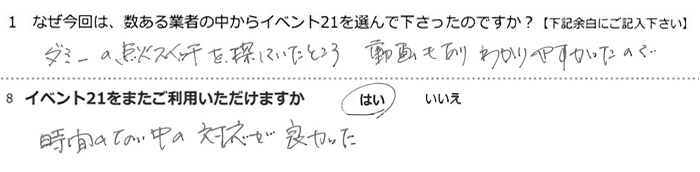 1 なぜ今回は、数ある業者の中からイベント21を選んで下さったのですか？【下記余白にご記入下さい】
ダミーの点火スイッチを探していたところ 動画もあり わかりやすかったので
8 イベント21をまたご利用いただけますか はい いいえ
時間のない中の対応が良かった